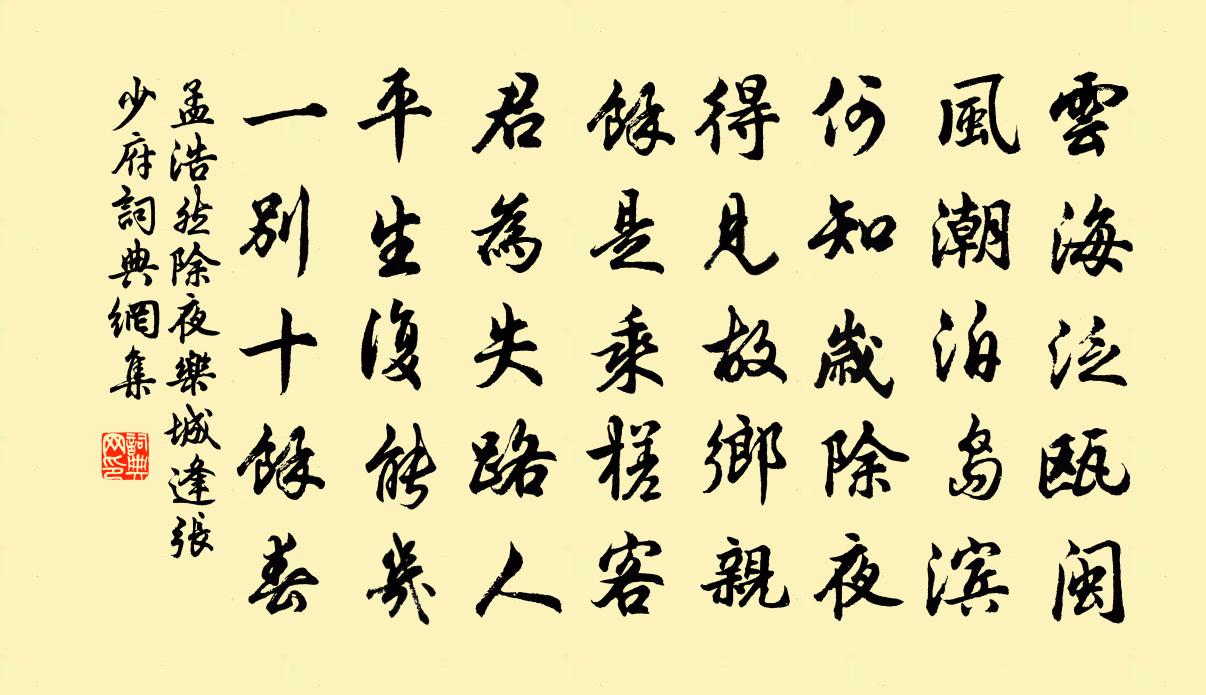 雲海泛瓯闽
風潮泊島滨
何知歲除夜
得見故鄉親
餘是乘槎客
君為失路人
平生復能幾
一別十餘春
孟浩然除夜樂城逢張
少府詞典網集
詞典
网印